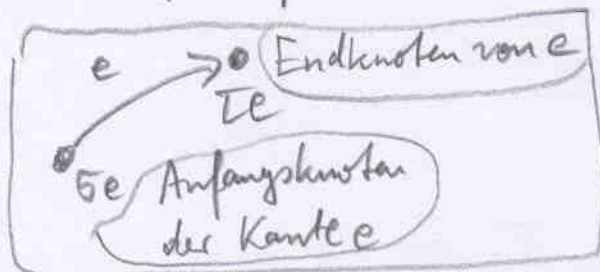 e
Endknoten von e
τe
σe
Anfangsknoten
der Kante e